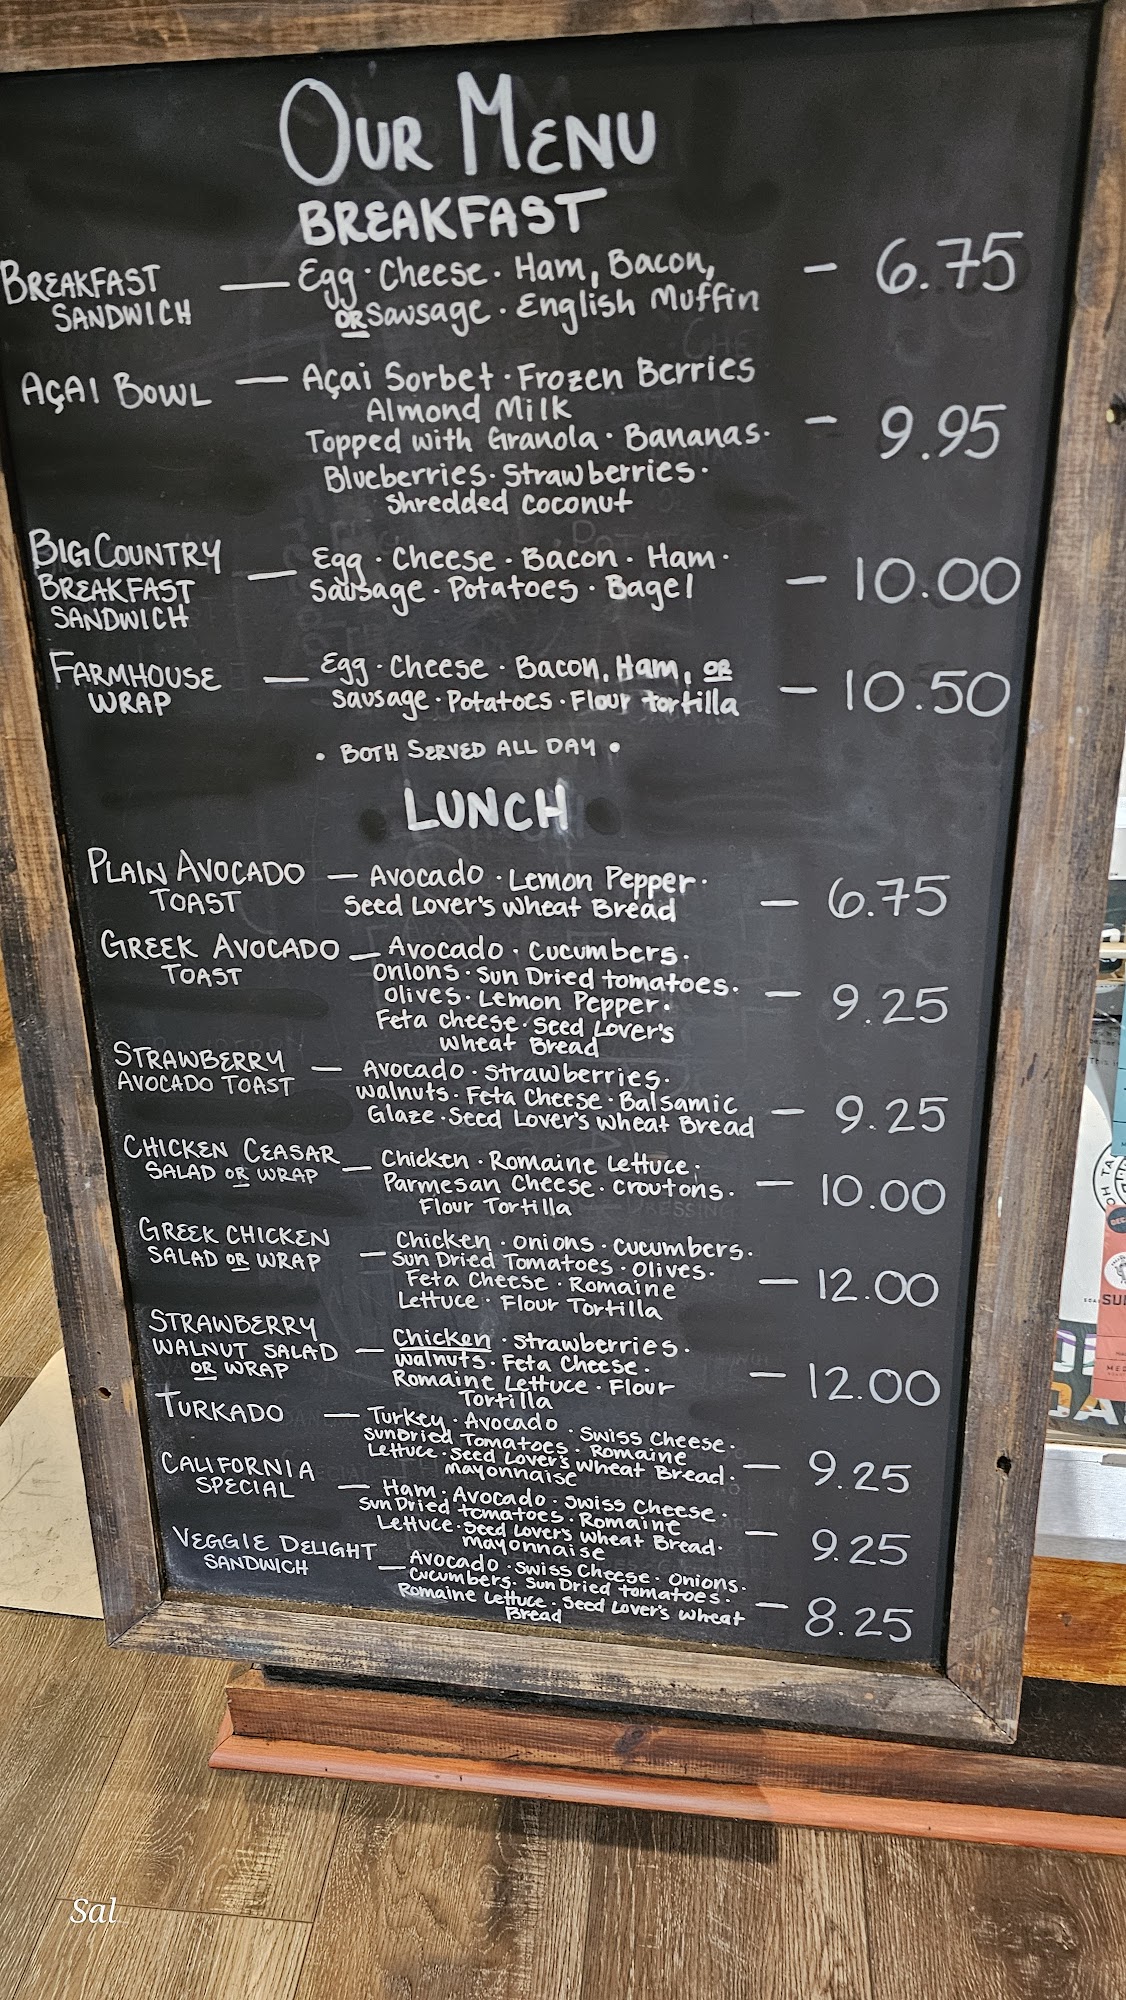 OUR MENU
BREAKFAST
BREAKFAST SANDWICH — Egg · Cheese · Ham, Bacon, — 6.75
OR Sausage · English Muffin
AÇAI BOWL — Açai Sorbet · Frozen Berries
Almond Milk — 9.95
Topped with Granola · Bananas ·
Blueberries · Strawberries ·
Shredded Coconut
BIG COUNTRY BREAKFAST SANDWICH — Egg · Cheese · Bacon · Ham · — 10.00
Sausage · Potatoes · Bagel
FARMHOUSE WRAP — Egg · Cheese · Bacon, Ham, OR — 10.50
Sausage · Potatoes · Flour tortilla
• BOTH SERVED ALL DAY •
LUNCH
PLAIN AVOCADO TOAST — Avocado · Lemon Pepper · — 6.75
Seed Lover's Wheat Bread
GREEK AVOCADO TOAST — Avocado · Cucumbers ·
Onions · Sun Dried tomatoes · — 9.25
Olives · Lemon Pepper ·
Feta cheese · Seed Lover's
Wheat Bread
STRAWBERRY AVOCADO TOAST — Avocado · Strawberries ·
Walnuts · Feta Cheese · Balsamic — 9.25
Glaze · Seed Lover's Wheat Bread
CHICKEN CEASAR SALAD OR WRAP — Chicken · Romaine Lettuce ·
Parmesan Cheese · croutons · — 10.00
Flour Tortilla
GREEK CHICKEN SALAD OR WRAP — Chicken · onions · cucumbers ·
Sun Dried Tomatoes · Olives · — 12.00
Feta Cheese · Romaine
Lettuce · Flour Tortilla
STRAWBERRY WALNUT SALAD OR WRAP — Chicken · Strawberries ·
Walnuts · Feta Cheese · — 12.00
Romaine Lettuce · Flour
Tortilla
TURKADO — Turkey · Avocado · Swiss Cheese ·
Sun Dried Tomatoes · Romaine — 9.25
Lettuce · Seed Lover's Wheat Bread ·
Mayonnaise
CALIFORNIA SPECIAL — Ham · Avocado · Swiss Cheese ·
Sun Dried tomatoes · Romaine — 9.25
Lettuce · Seed Lovers Wheat Bread ·
mayonnaise
VEGGIE DELIGHT SANDWICH — Avocado · Swiss Cheese · Onions ·
Cucumbers · Sun Dried tomatoes · — 8.25
Romaine Lettuce · Seed Lover's Wheat
Bread
Sal